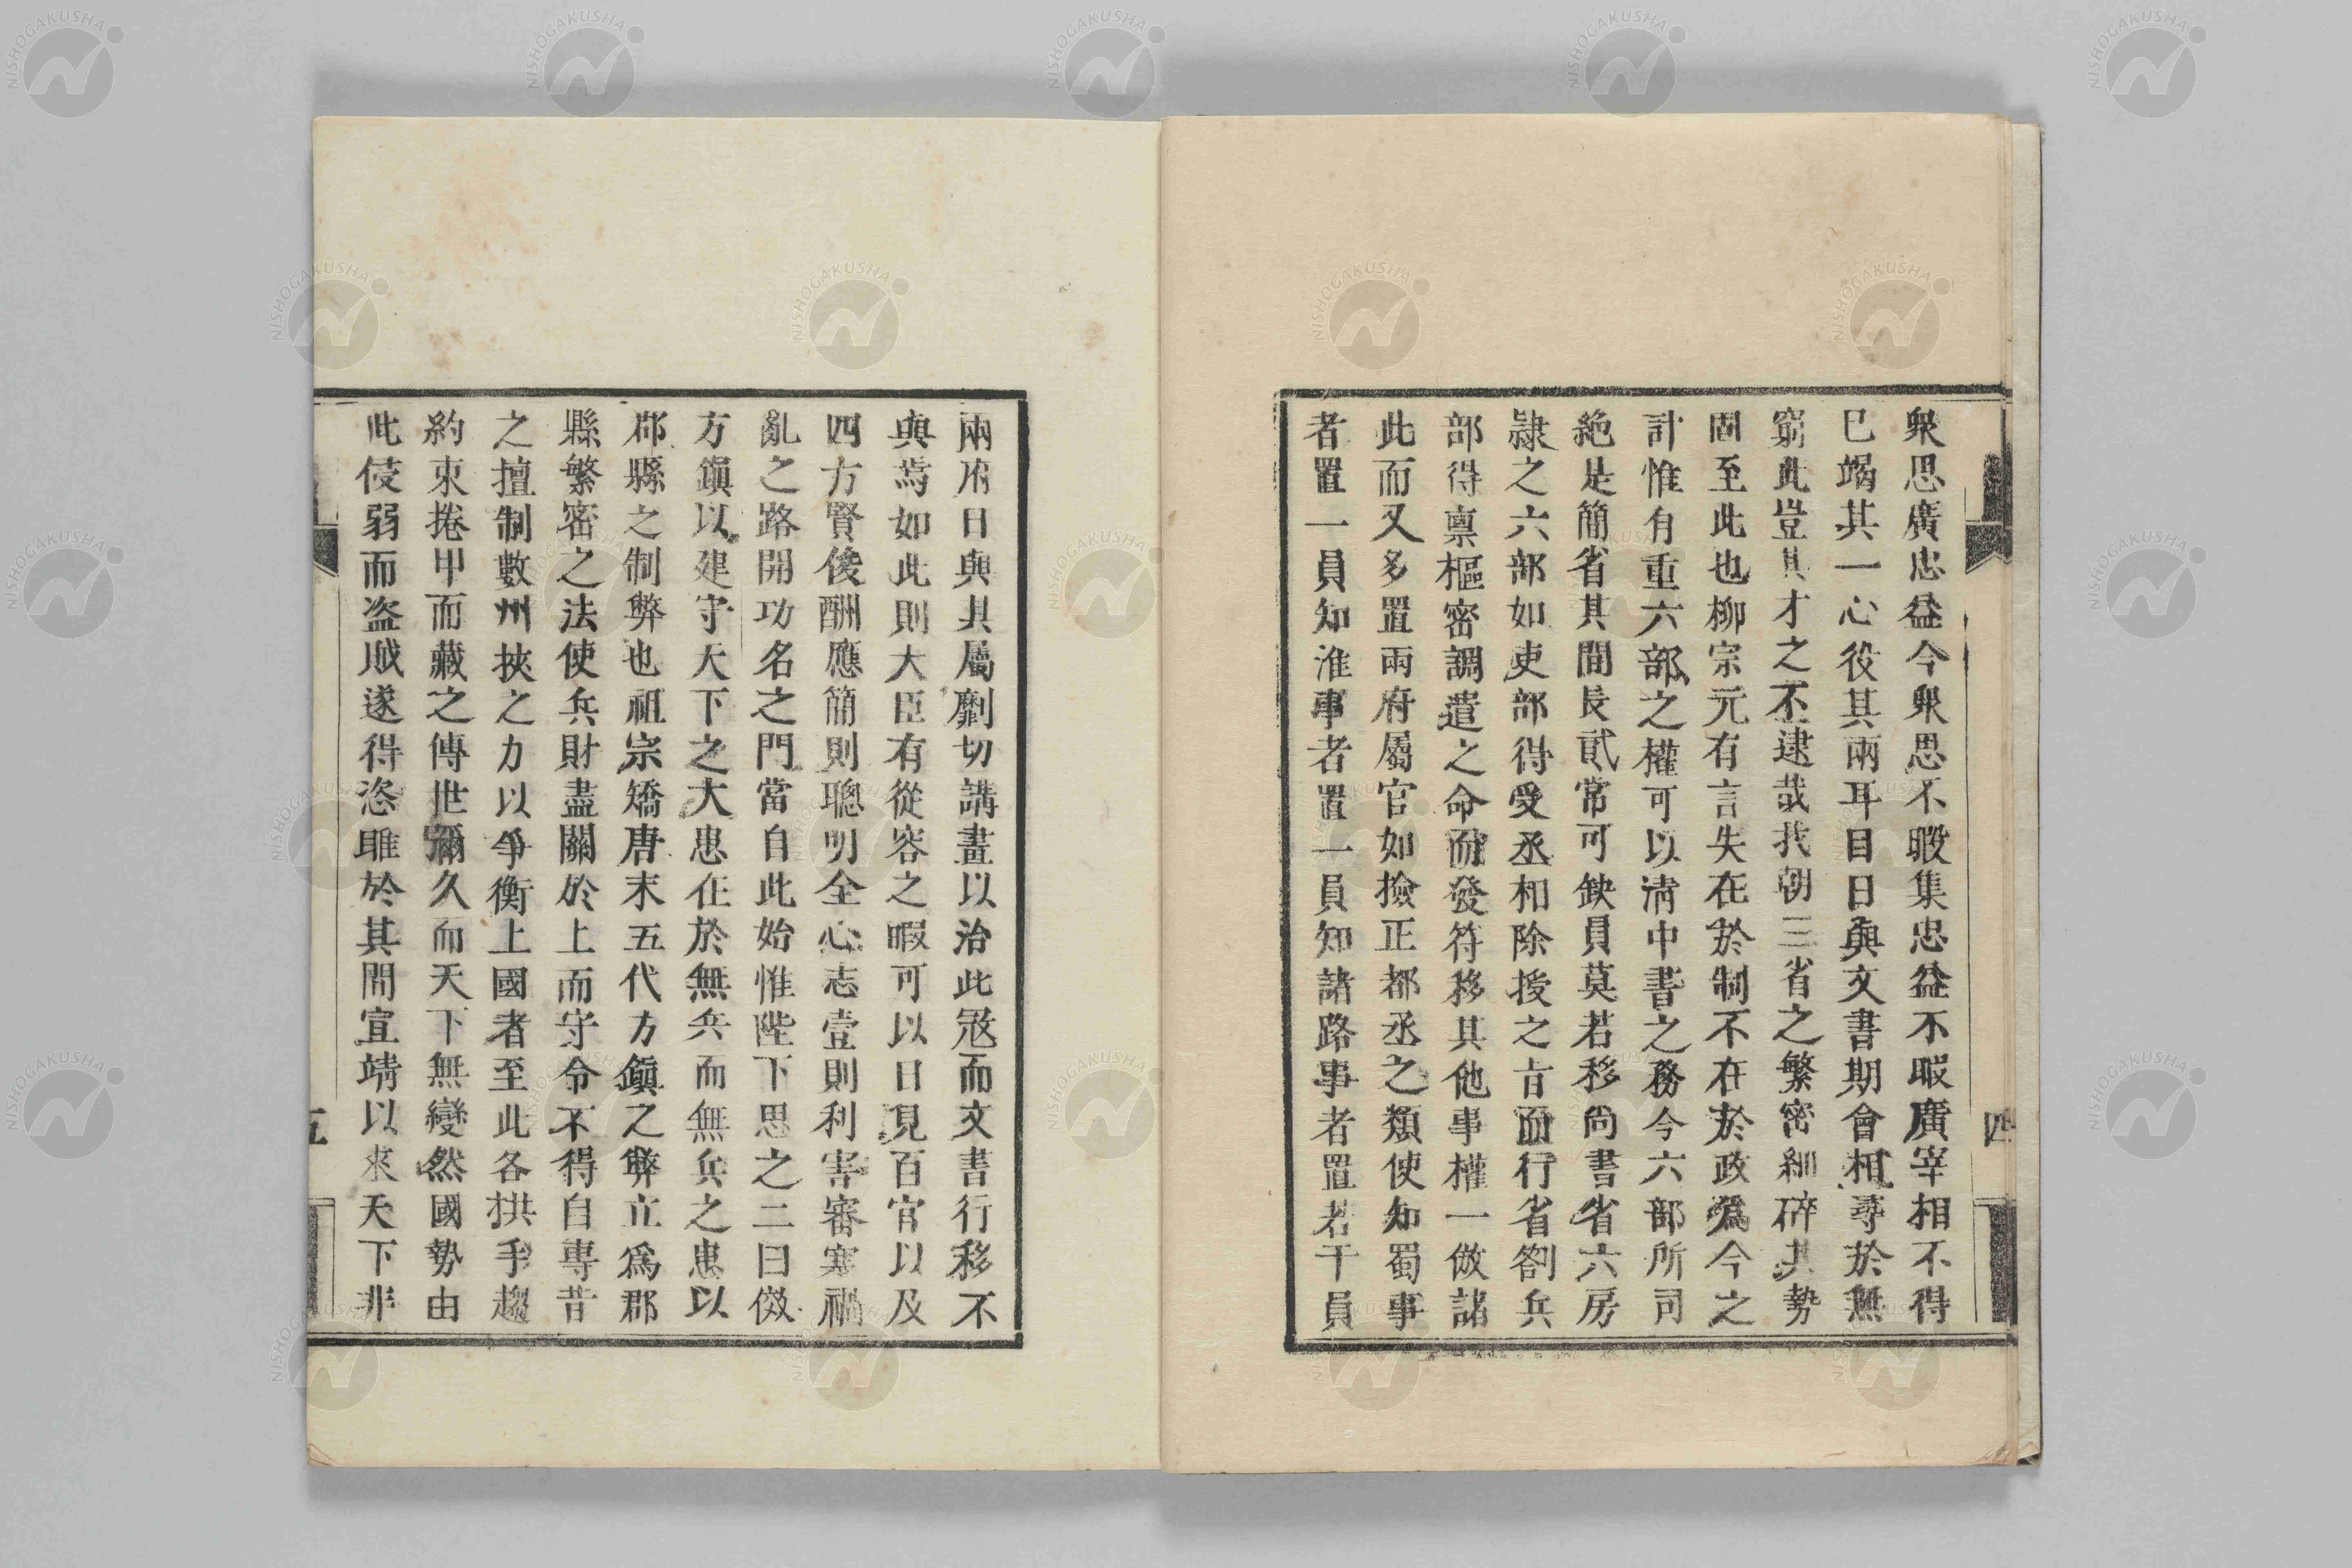 衆思廣忠益今衆思不暇集忠益不暇廣宰相不得
已竭其一心役其兩耳目日與文書期會相尋於無
窮此豈其才之不逮哉我朝三省之繁密細碎其勢
固至此也柳宗元有言失在於制不在於政爲今之
計惟有重六部之權可以清中書之務今六部所司
絶是簡省其間長貳常可缺員莫若移尚書省六房
隷之六部如吏部得受丞相除授之㫖而行省劄兵
部得禀樞密調遣之命而發符移其他事權一倣諸
此而又多置兩府屬官如撿正都丞之類使知蜀事
者置一員知淮事者置一員知諸路事者置若干員
四
兩府日與其屬劘切講畫以治此冦而文書行移不
與焉如此則大臣有從容之暇可以日見百官以及
四方賢俊酬應簡則聰明全心志壹則利害審寒禍
亂之路開功名之門當自此始惟陛下思之二曰倣
方鎮以建守天下之大患在於無兵而無兵之患以
郡縣之制弊也祖宗矯唐末五代方鎮之弊立爲郡
縣繁密之法使兵財盡關於上而守令不得自專昔
之擅制數州挾之力以爭衡上國者至此各拱手趨
約束捲甲而藏之傳世彌久而天下無變然國勢由
此伎弱而盗賊遂得恣睢於其間宣靖以來天下非
五
NISHOGAKUSHA